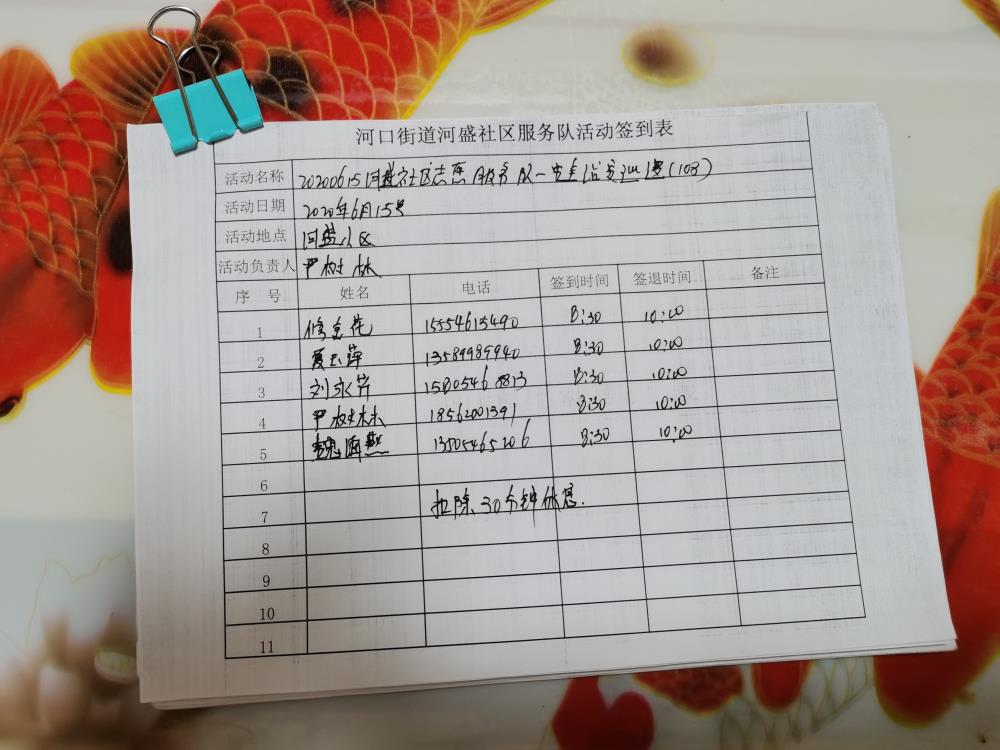 河口街道河盛社区服务队活动签到表
活动名称 20200615河盛社区志愿服务队一安全治安巡逻(103)
活动日期 2020年6月15号
活动地点 河盛小区
活动负责人 尹树林
序 号 姓名 电话 签到时间 签退时间 备注
1 修金花 15554615490 8:30 10:00
2 夏玉萍 13589989940 8:30 10:00
3 刘永芹 15805468813 8:30 10:00
4 尹树林 18562001391 8:30 10:00
5 魏海燕 13505465206 8:30 10:00
6
7 扣除30分钟休息.
8
9
10
11